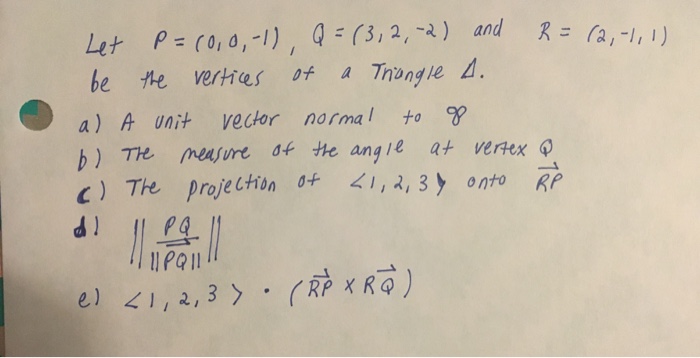 Let P = (0,0,-1), Q = (3,2,-2) and R = (2,-1,1)
be the vertices of a Triangle Δ.
a) A unit vector normal to
b) The measure of the angle at vertex Q
c) The projection of <1,2,3> onto \overrightarrow{RP}
d) || \overrightarrow{PQ} / ||\overrightarrow{PQ}|| ||
e) <1,2,3> · (\overrightarrow{RP} × \overrightarrow{RQ})